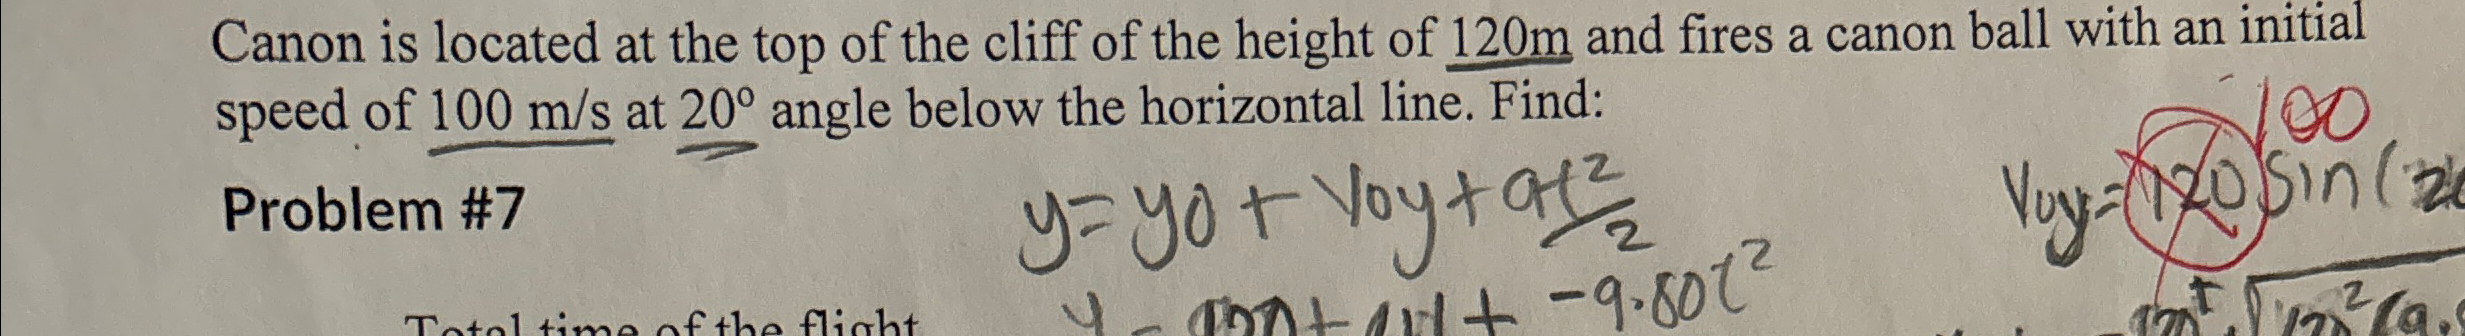 Canon is located at the top of the cliff of the height of 120m and fires a canon ball with an initial
speed of 100 m/s at 20° angle below the horizontal line. Find:
100
Problem #7
y = y0 + V0y + at²/2
V0y = 120 sin(20
Total time of the flight
-9.80t²